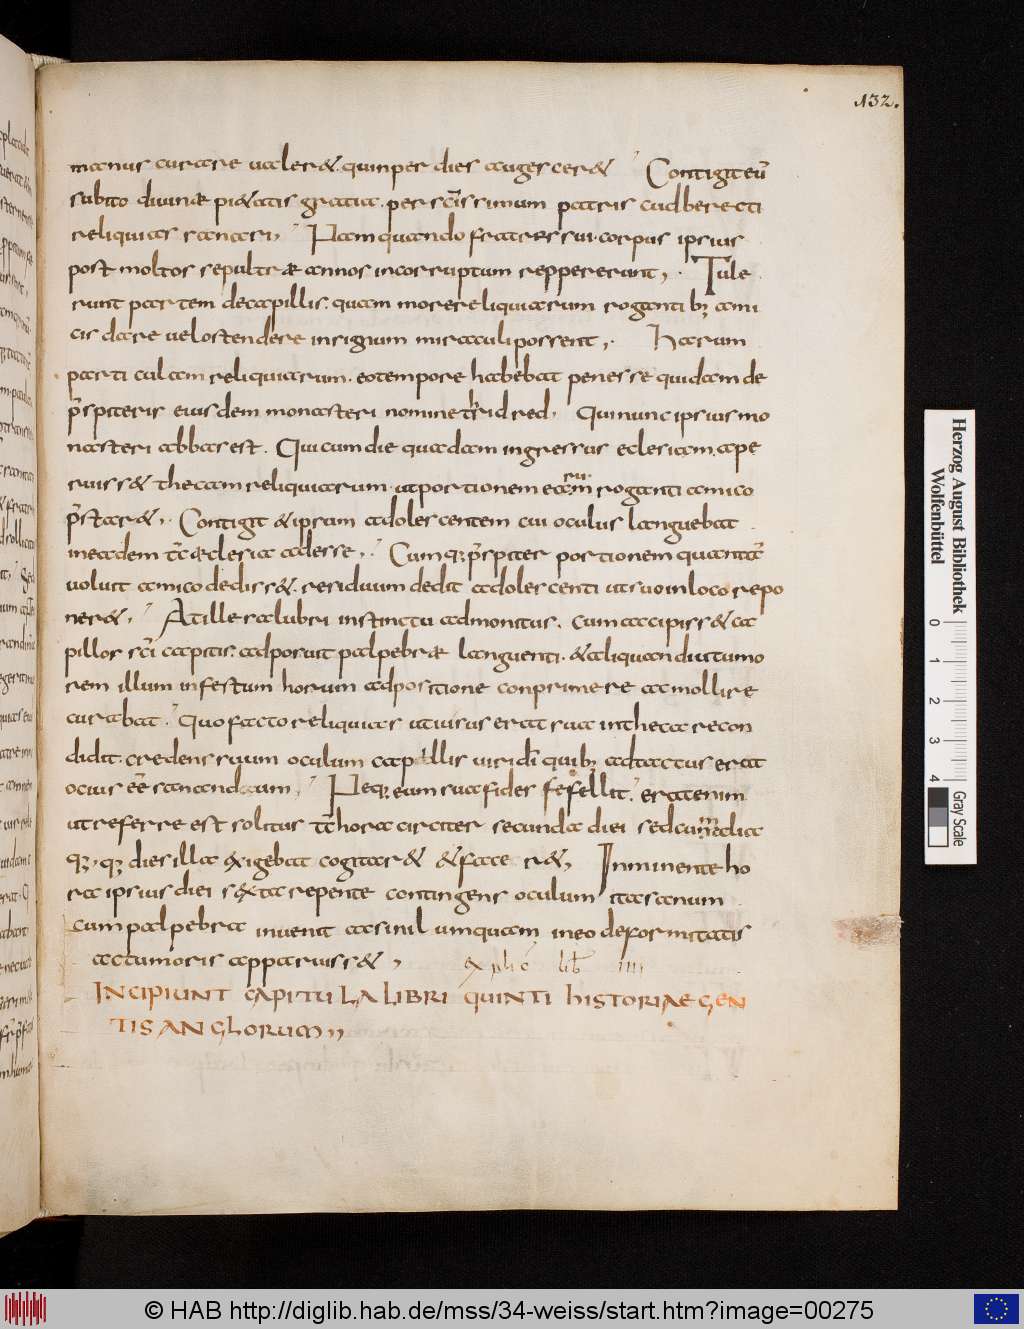 132.
manus curare ualer&. quin per dies augescer& Contigit eū
subito diuinae pi&atis gratia. per scissimum patris cudberecti
reliquias sanari, Nam quando fratres sui. corpus ipsius
post moltos sepultrae annos incorruptum reppererunt,. Tule
runt partem de capillis. quam more reliquiarum rogantibꝫ ami
cis dare uel ostendere in signum miraculi possent,. Harum
particulam reliquiarum. eo tempore habebat penes se quidam de
p̄spiteris eiusdem monasteri nomine thridred, Qui nunc ipsius mo
nasteri abbas est. Qui cum die quadam ingressus eclesiam, ape
ruiss& thecam reliquiarum. ut portionem earum roganti amico
p̄star&,. Contigit & ipsum adolescentem cui oculus languebat
in eadem tc̄ aeclesia adesse,. Cumqꝫ p̄spiter portionem quantā
uoluit amico dediss&. residuum dedit adolescenti ut suo in loco repo
ner&, At ille salubri instinctu admonitus. cum accipiss& ca
pillos sc̄i capitis. adposuit palpebrae languenti. & aliquandiu tumo
rem illum infestum horum adpositione conprimere ac mollire
curabat. Quo facto reliquias ut iusus erat sua in theca recon
didit. credens suum oculum capillis uiri dī quibꝫ adtactus erat
ocius eē sanandum, Neqꝫ eum sua fides fefellit. erat enim
ut referre est solitus tc̄ hora circiter secunda diei sed cum media
qꝫ, qꝫ dies illa exigebat cogitar& & face r&, Inminente ho
ra ipsius diei sexta repente contingens oculum ita sanum
cum palpebra inuenit ac si nil umquam in eo deformitatis
ac tumoris apparuiss&, explic̄ lib̄ IIII
INCIPIUNT CAPITULA LIBRI QUINTI HISTORIAE GEN
TIS ANGLORUM,,
Herzog August Bibliothek
Wolfenbüttel
0 1 2 3 4
Gray Scale
© HAB http://diglib.hab.de/mss/34-weiss/start.htm?image=00275